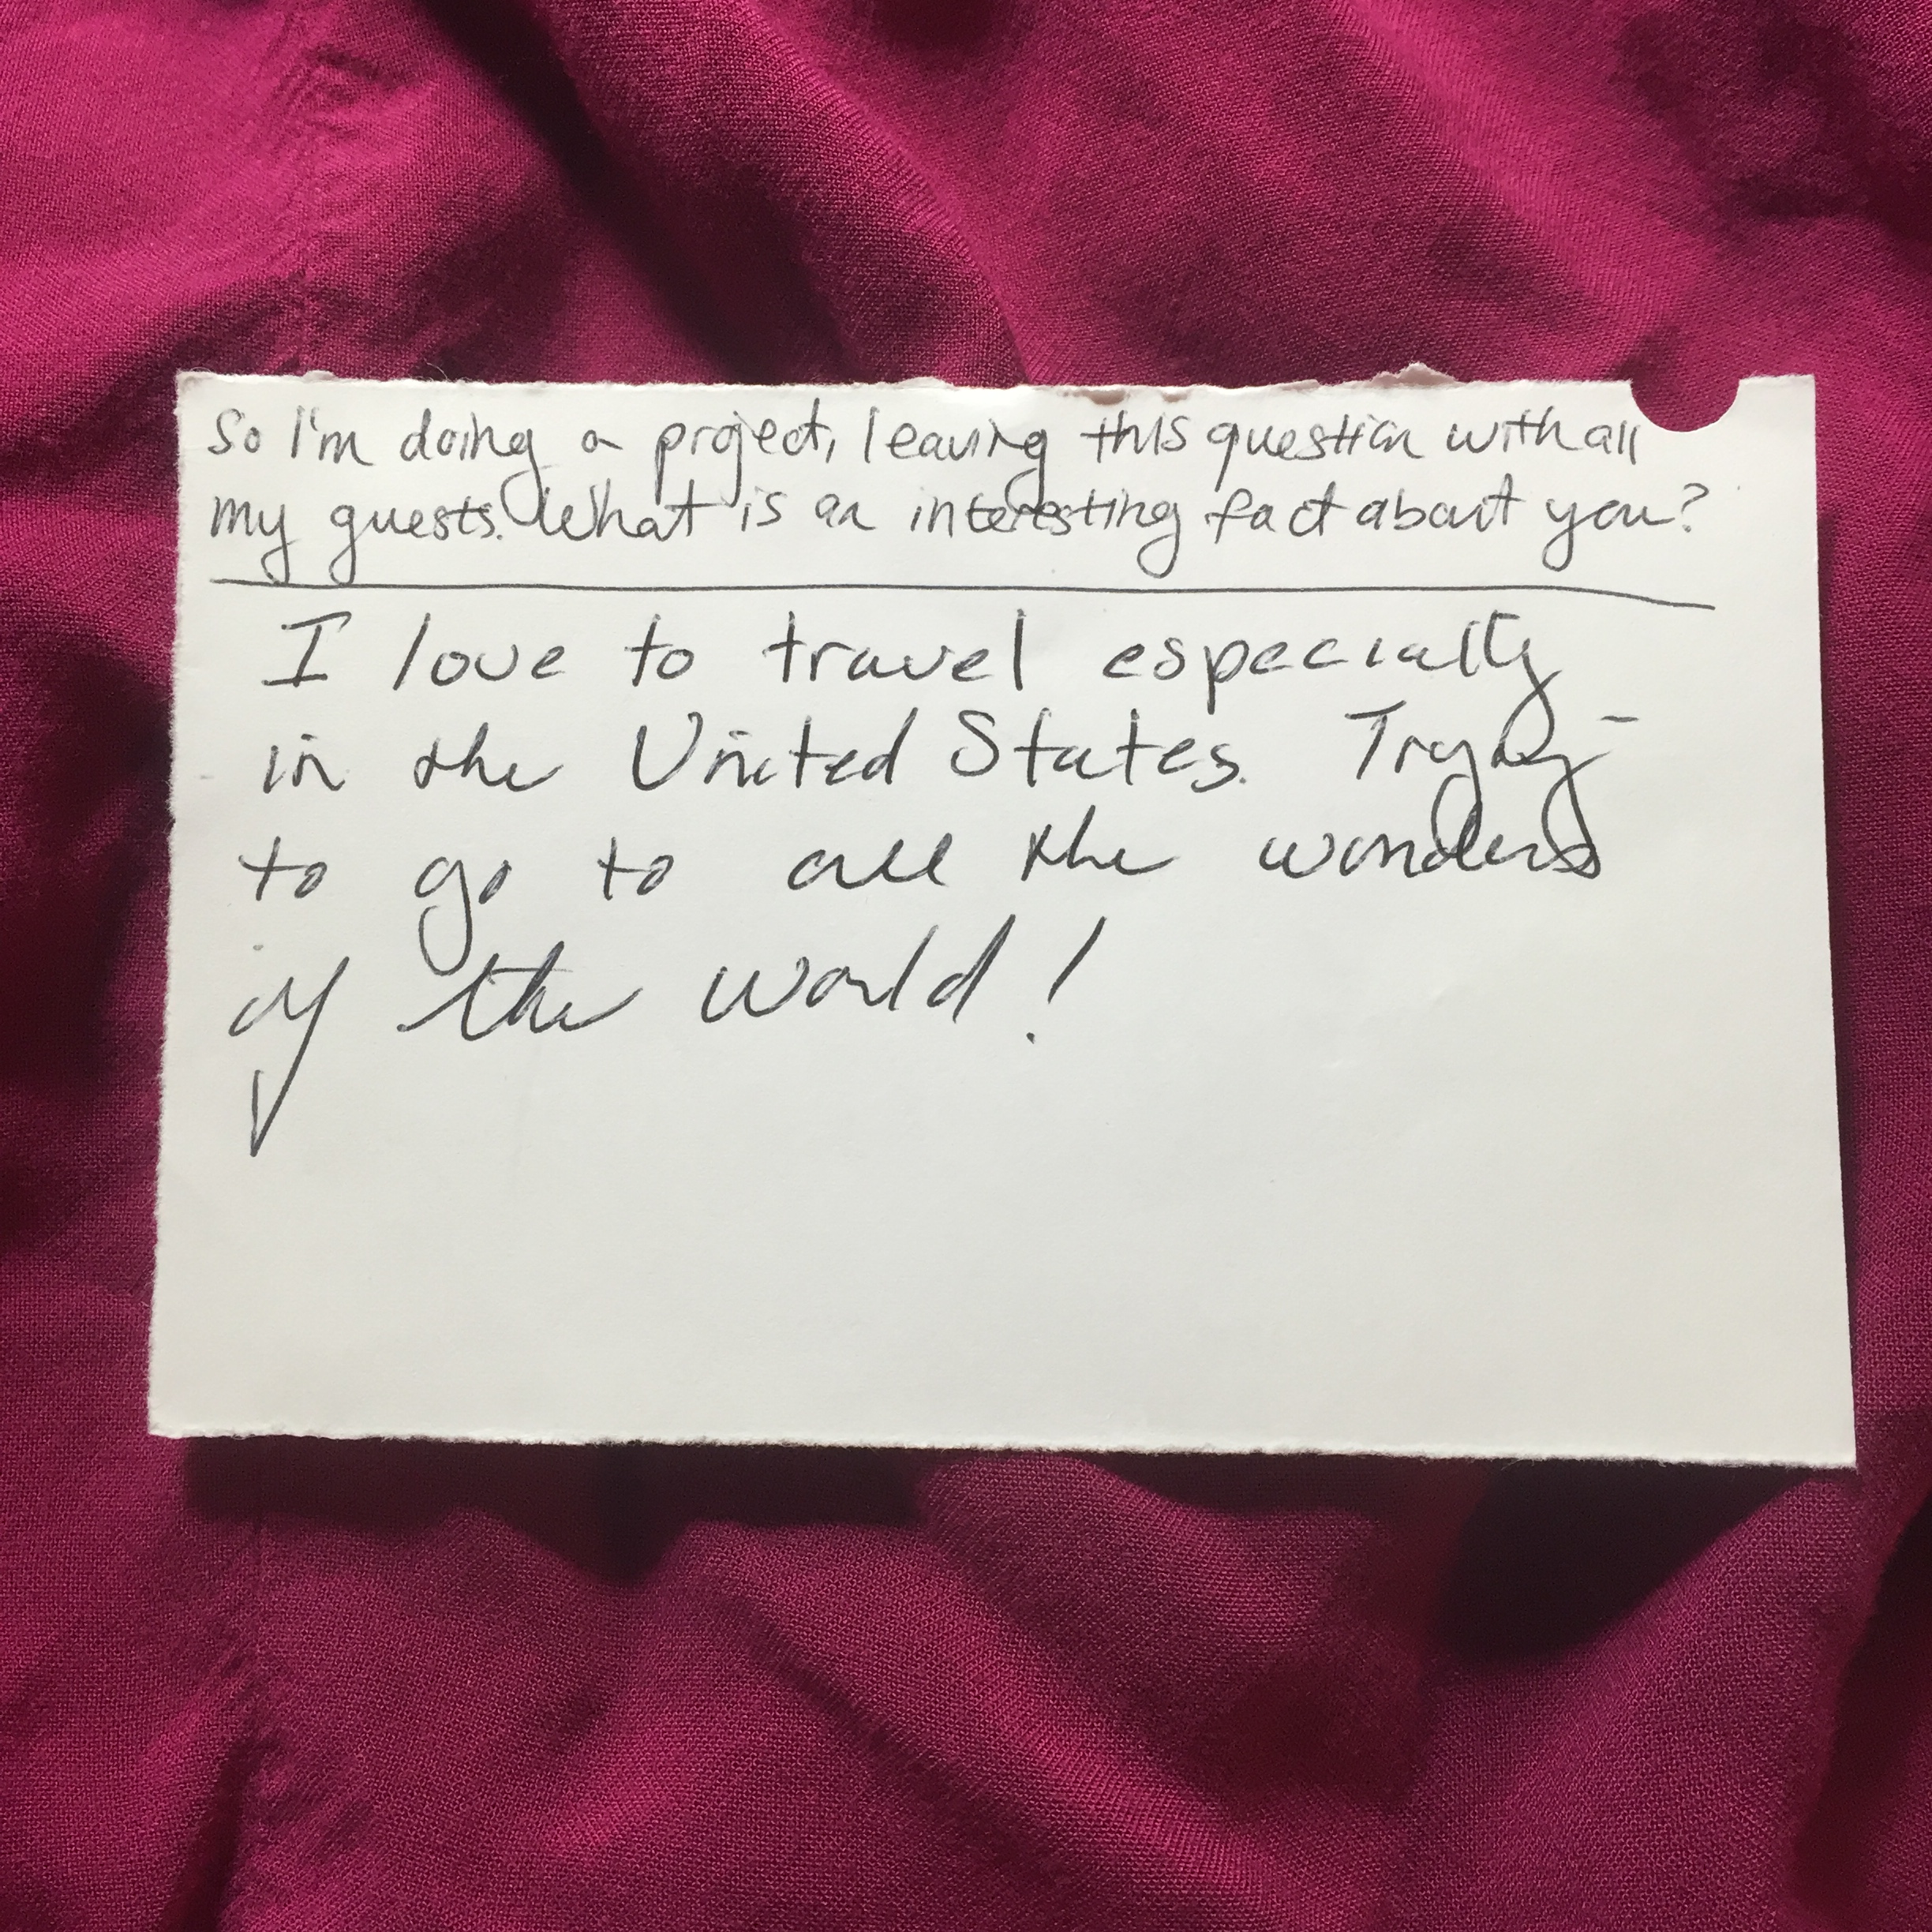 So I'm doing a project, leaving this question with all
my guests. What is an interesting fact about you?
I love to travel especially
in the United States. Trying
to go to all the wonders
of the world!